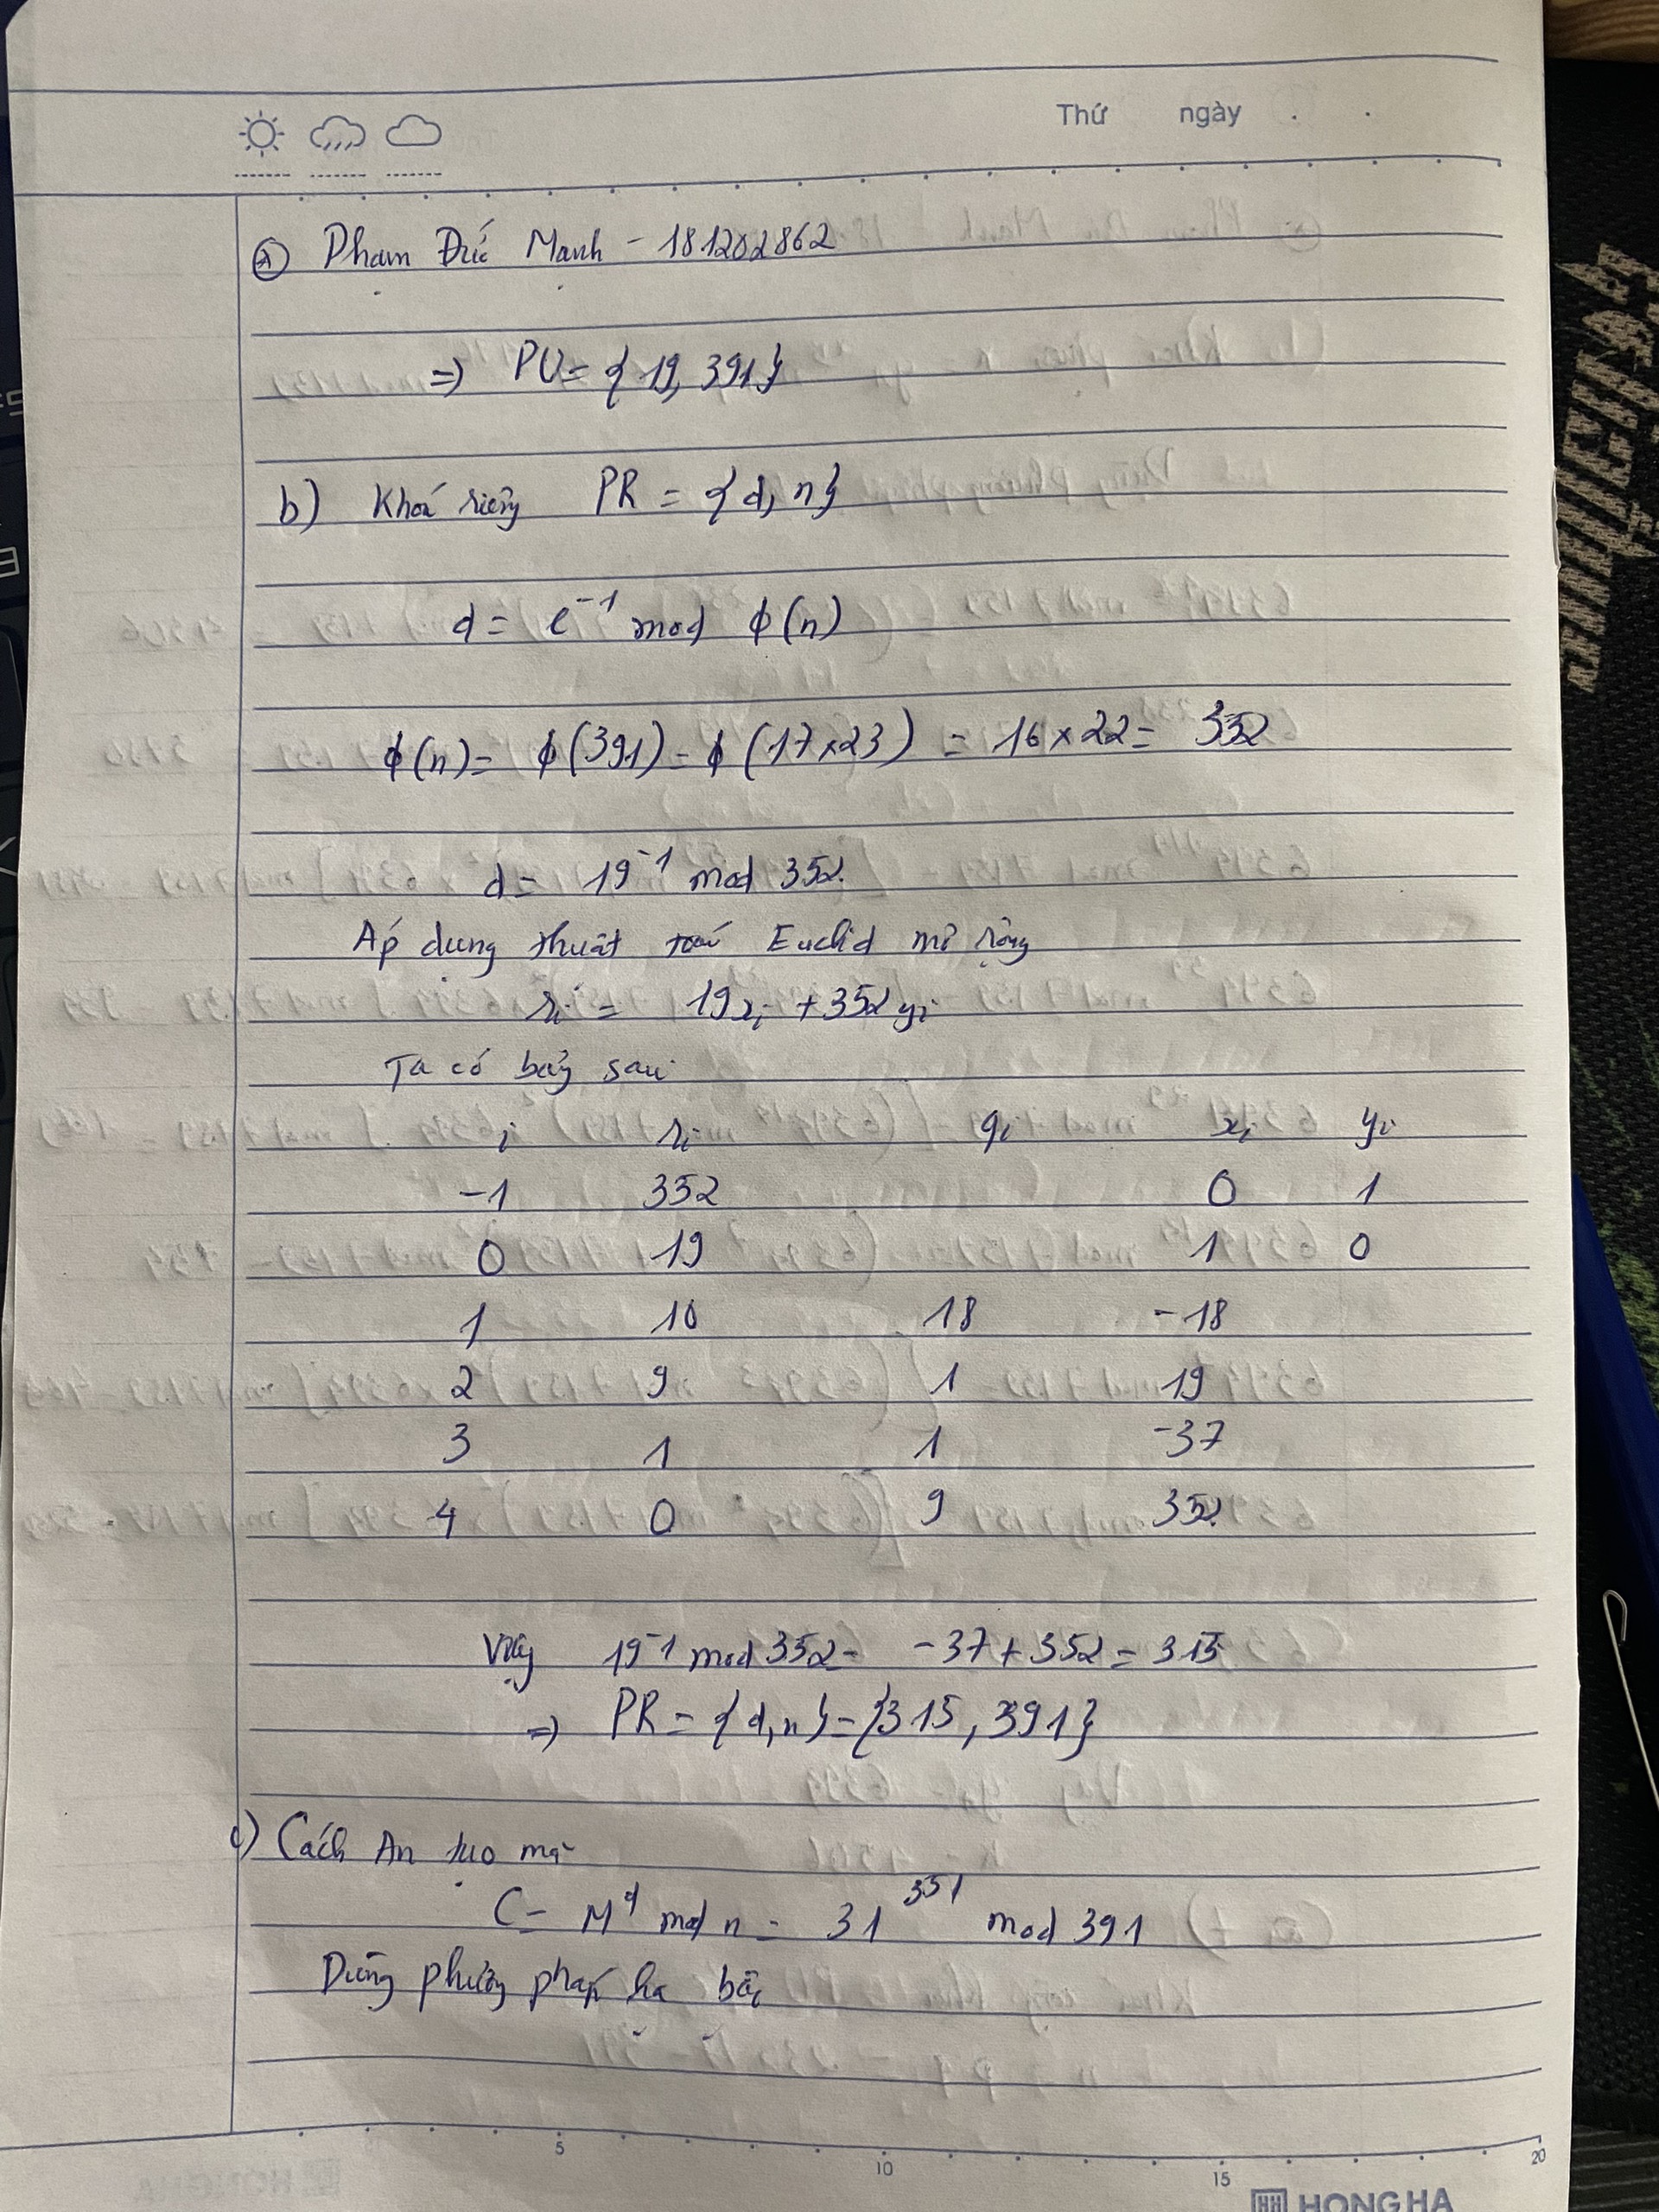 Thứ ngày
② Phạm Đức Mạnh - 181202862
=> PU = {19, 391}
b) Khoá riêng PR = {d, n}
d = e^-1 mod ϕ(n)
ϕ(n) = ϕ(391) = ϕ(17×23) = 16×22 = 352
d = 19^-1 mod 352.
Áp dụng thuật toán Euclid mở rộng
ri = 19xi + 352yi
Ta có bảng sau
i ri qi xi yi
-1 352 0 1
0 19 1 0
1 10 18 -18
2 9 1 19
3 1 1 -37
4 0 9 352.
Vậy 19^-1 mod 352 = -37 + 352 = 315
=> PR = {d, n} = {315, 391}
c) Cách An tạo mã
C = M^d mod n = 31^351 mod 391
Dùng phương pháp hạ bậc
5 10 15 20
HH HONG HA